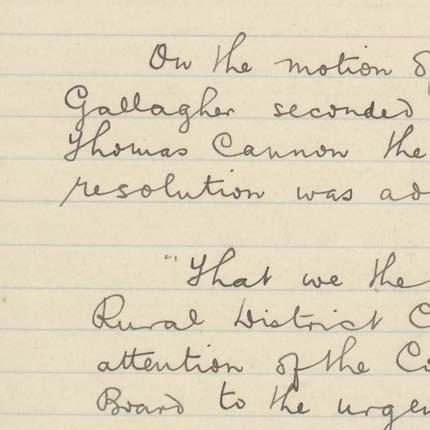 On the motion of
Gallagher seconded
Thomas Cannon the
resolution was ad
"That we the
Rural District C
attention of the Co
Board to the urgen